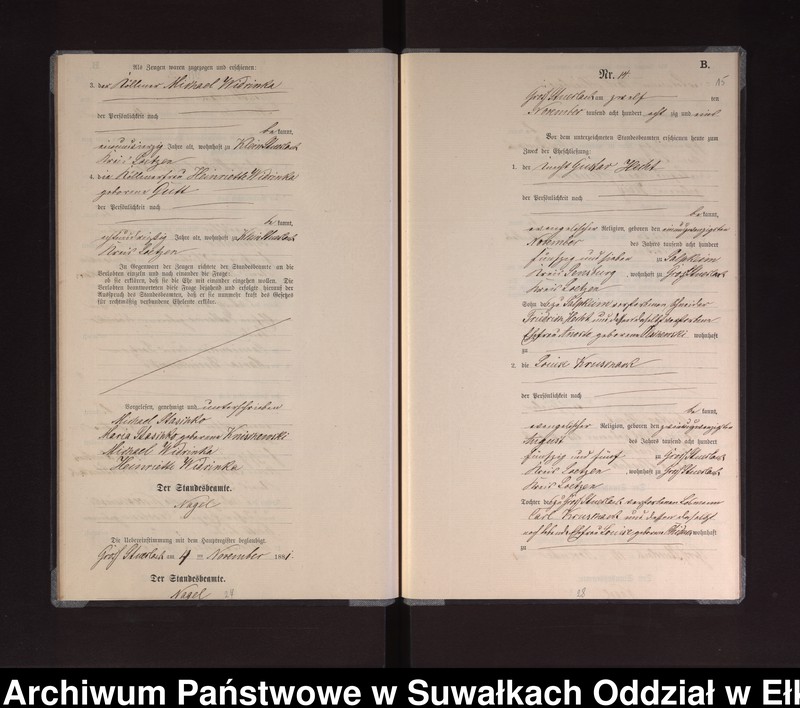 Als Zeugen waren zugezogen und erschienen:
3. der Kölmer Michael Widrinka
der Persönlichkeit nach
be kannt,
Jahre alt, wohnhaft zu Klein Stuerlack
Kreis Loetzen
4. die Kölmerfrau Heinriette Widrinka
geborene
der Persönlichkeit nach
be kannt,
Jahre alt, wohnhaft zu Klein Stuerlack
Kreis Loetzen
In Gegenwart der Zeugen richtete der Standesbeamte an die
Verlobten einzeln und nach einander die Frage:
ob sie erklären, daß sie die Ehe mit einander eingehen wollen. Die
Verlobten beantworteten diese Frage bejahend und erfolgte hierauf der
Ausspruch des Standesbeamten, daß er sie nunmehr kraft des Gesetzes
für rechtmäßig verbundene Eheleute erkläre.
Vorgelesen, genehmigt und unterschrieben
Michael Stasinko
Maria Stasinko geborene Kniskowski
Michael Widrinka
Heinriette Widrinka
Der Standesbeamte.
Nagel
Die Uebereinstimmung mit dem Hauptregister beglaubigt
Groß Stuerlack am 4 ten November 1881.
Der Standesbeamte.
Nagel 29
B.
15
Nr. 14.
Groß Stuerlack am zwölf ten
November tausend acht hundert acht zig und eins
Vor dem unterzeichneten Standesbeamten erschienen heute zum
Zweck der Eheschließung:
1. der Knecht Gustav Hecht
der Persönlichkeit nach
be kannt,
evangelischer Religion, geboren den einundzwanzigsten
November des Jahres tausend acht hundert
fünfzig und sieben zu Salpkeim
Kreis Sensburg, wohnhaft zu Groß Stuerlack
Kreis Loetzen
Sohn des zu Salpkeim verstorbenen Schneider
Friedrich Hecht und dessen daselbst verstorbene
Ehefrau geborene wohnhaft
zu
2. die Louise Kruskant
der Persönlichkeit nach
be kannt,
evangelischer Religion, geboren den zweiundzwanzigsten
August des Jahres tausend acht hundert
fünfzig und fünf zu Groß Stuerlack
Kreis Loetzen, wohnhaft zu Groß Stuerlack
Kreis Loetzen
Tochter des zu Groß Stuerlack verstorbenen Losmann
Carl Kruskant und dessen daselbst
noch lebende Ehefrau Louise geborene wohnhaft
zu
28
Archiwum Państwowe w Suwałkach Oddział w Ełk